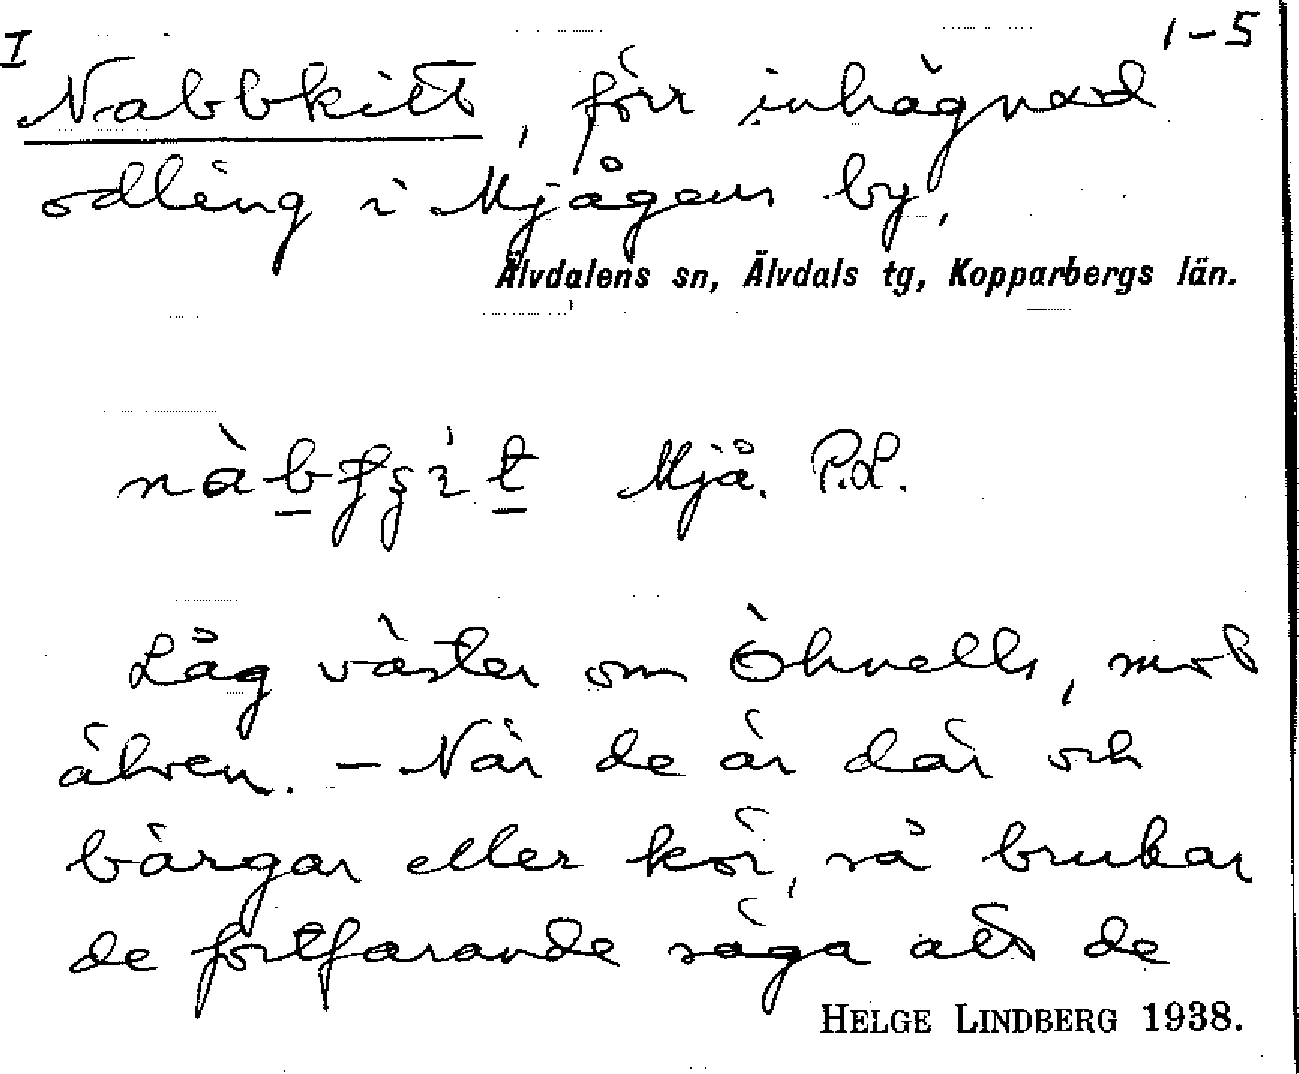 I 1-5
Nabbkitt, förr inhägnad
odling i Mjågens by.
Älvdalens sn, Älvdals tg, Kopparbergs län.
Mjå. P.L.
Låg väster om Öhnells, mot
älven. - När de är där och
bärgar eller kör, så brukar
de fortfarande säga att de
HELGE LINDBERG 1938.